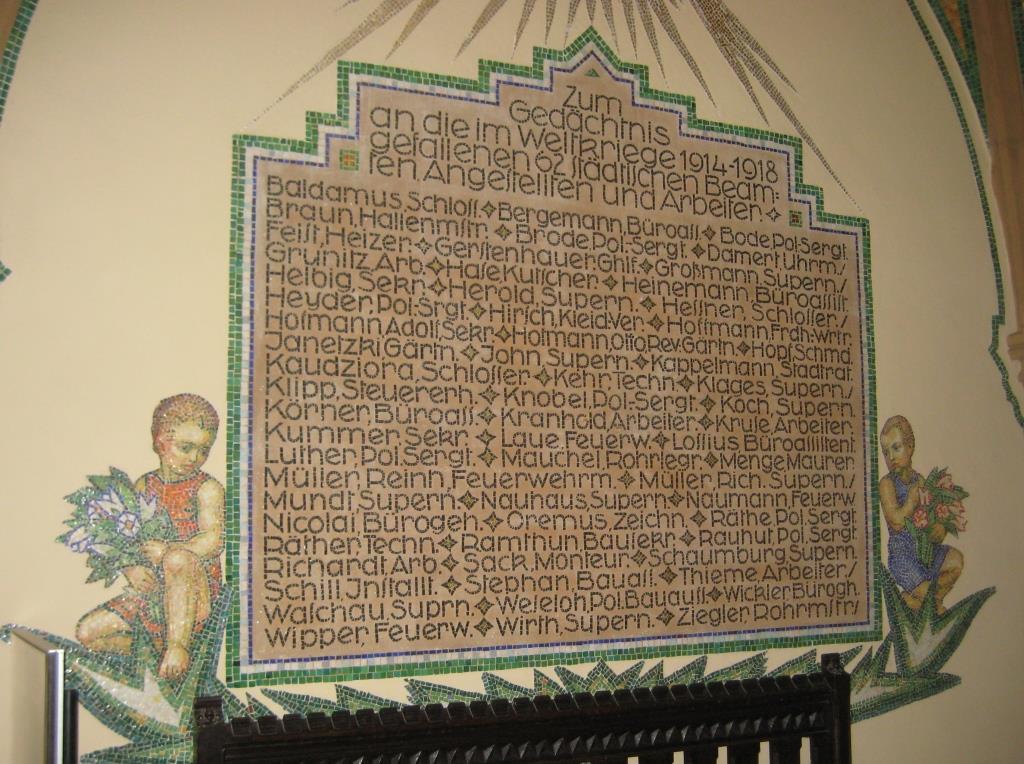 Zum
Gedächtnis
an die im Weltkriege 1914-1918
gefallenen 62 städtischen Beam:
ten Angestellten und Arbeiter
Baldamus, Schloss. Bergemann, Büroass. Bode Pol:Sergt.
Braun, Hallenmstr. Brode, Pol:-Sergt. Damert Uhrm/
Feist, Heizer. Gerstenhauer Ghlf. Großmann, Supern/
Grunitz Arb. Hase Kutscher. Heinemann, Büroassist
Helbig, Sekr. Herold, Supern. Hessner, Schlosser/
Heyder, Pol.-Srgt. Hirsch, Kleid-Ver. Hoffmann Frdh:-Wrtr.
Hofmann Adolf Sekr. Hofmann, Otto Rev. Gärtn. Hopf, Schmd.
Janetzki Gärtn. John, Supern. Kappelmann, Stadtrat
Kaudziora, Schlosser. Kehr, Techn. Klages, Supern/
Klipp, Steuererh. Knobel, Pol.-Sergt. Koch, Supern.
Körner Büroass. Kranhold, Arbeiter. Kruse, Arbeiter.
Kummer, Sekr. Laue, Feuerw. Lossius Büroassistent
Luther, Pol. Sergt. Mauchel, Rohrlegr. Menge Maurer
Müller, Reinh, Feuerwehrm. Müller, Rich. Supern/
Mundt, Supern. Nauhaus, Supern. Naumann, Feuerw
Nicolai, Bürogeh. Oremus, Zeichn. Räthe, Pol. Sergt.
Räther, Techn. Ramthun Bausekr. Rauhut, Pol. Sergt.
Richardt, Arb. Sack, Monteur. Schaumburg Supern.
Schill, Installt. Stephan, Bauass. Thieme, Arbeiter/
Waschau, Suprn. Weseloh, Pol. Bauauss. Wickler Bürogh.
Wipper, Feuerw. Wirth, Supern. Ziegler, Rohrmstr/